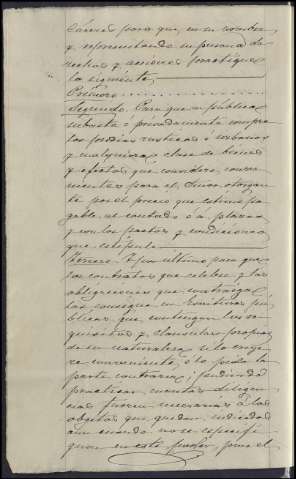 para que, en su nombre
y representando su persona de-
rechos y acciones practique
lo siguiente,
Primero
Segundo. Para que en pública
subasta ó privadamente compre
los predios rusticos ó urbanos
y cualquiera clase de bienes
y efectos que considere conve-
nientes para el Señor otorgan-
te por el precio que estime pa-
gable al contado ó á plazos
y con los pactos y condiciones
que estipule
Tercero. Y por ultimo para que
los contratos que celebre y las
obligaciones que contraiga
los consigne en Escrituras pú-
blicas que contengan los re-
quisitos y clausulas propias
de su naturaleza si lo cre-
ye conveniente, ó lo pida la
parte contraria; pudiendo
practicar cuantas diligen-
cias fueren necesarias á los
objetos que quedan indicados
aun cuando no se especifi-
quen en este poder, pues el